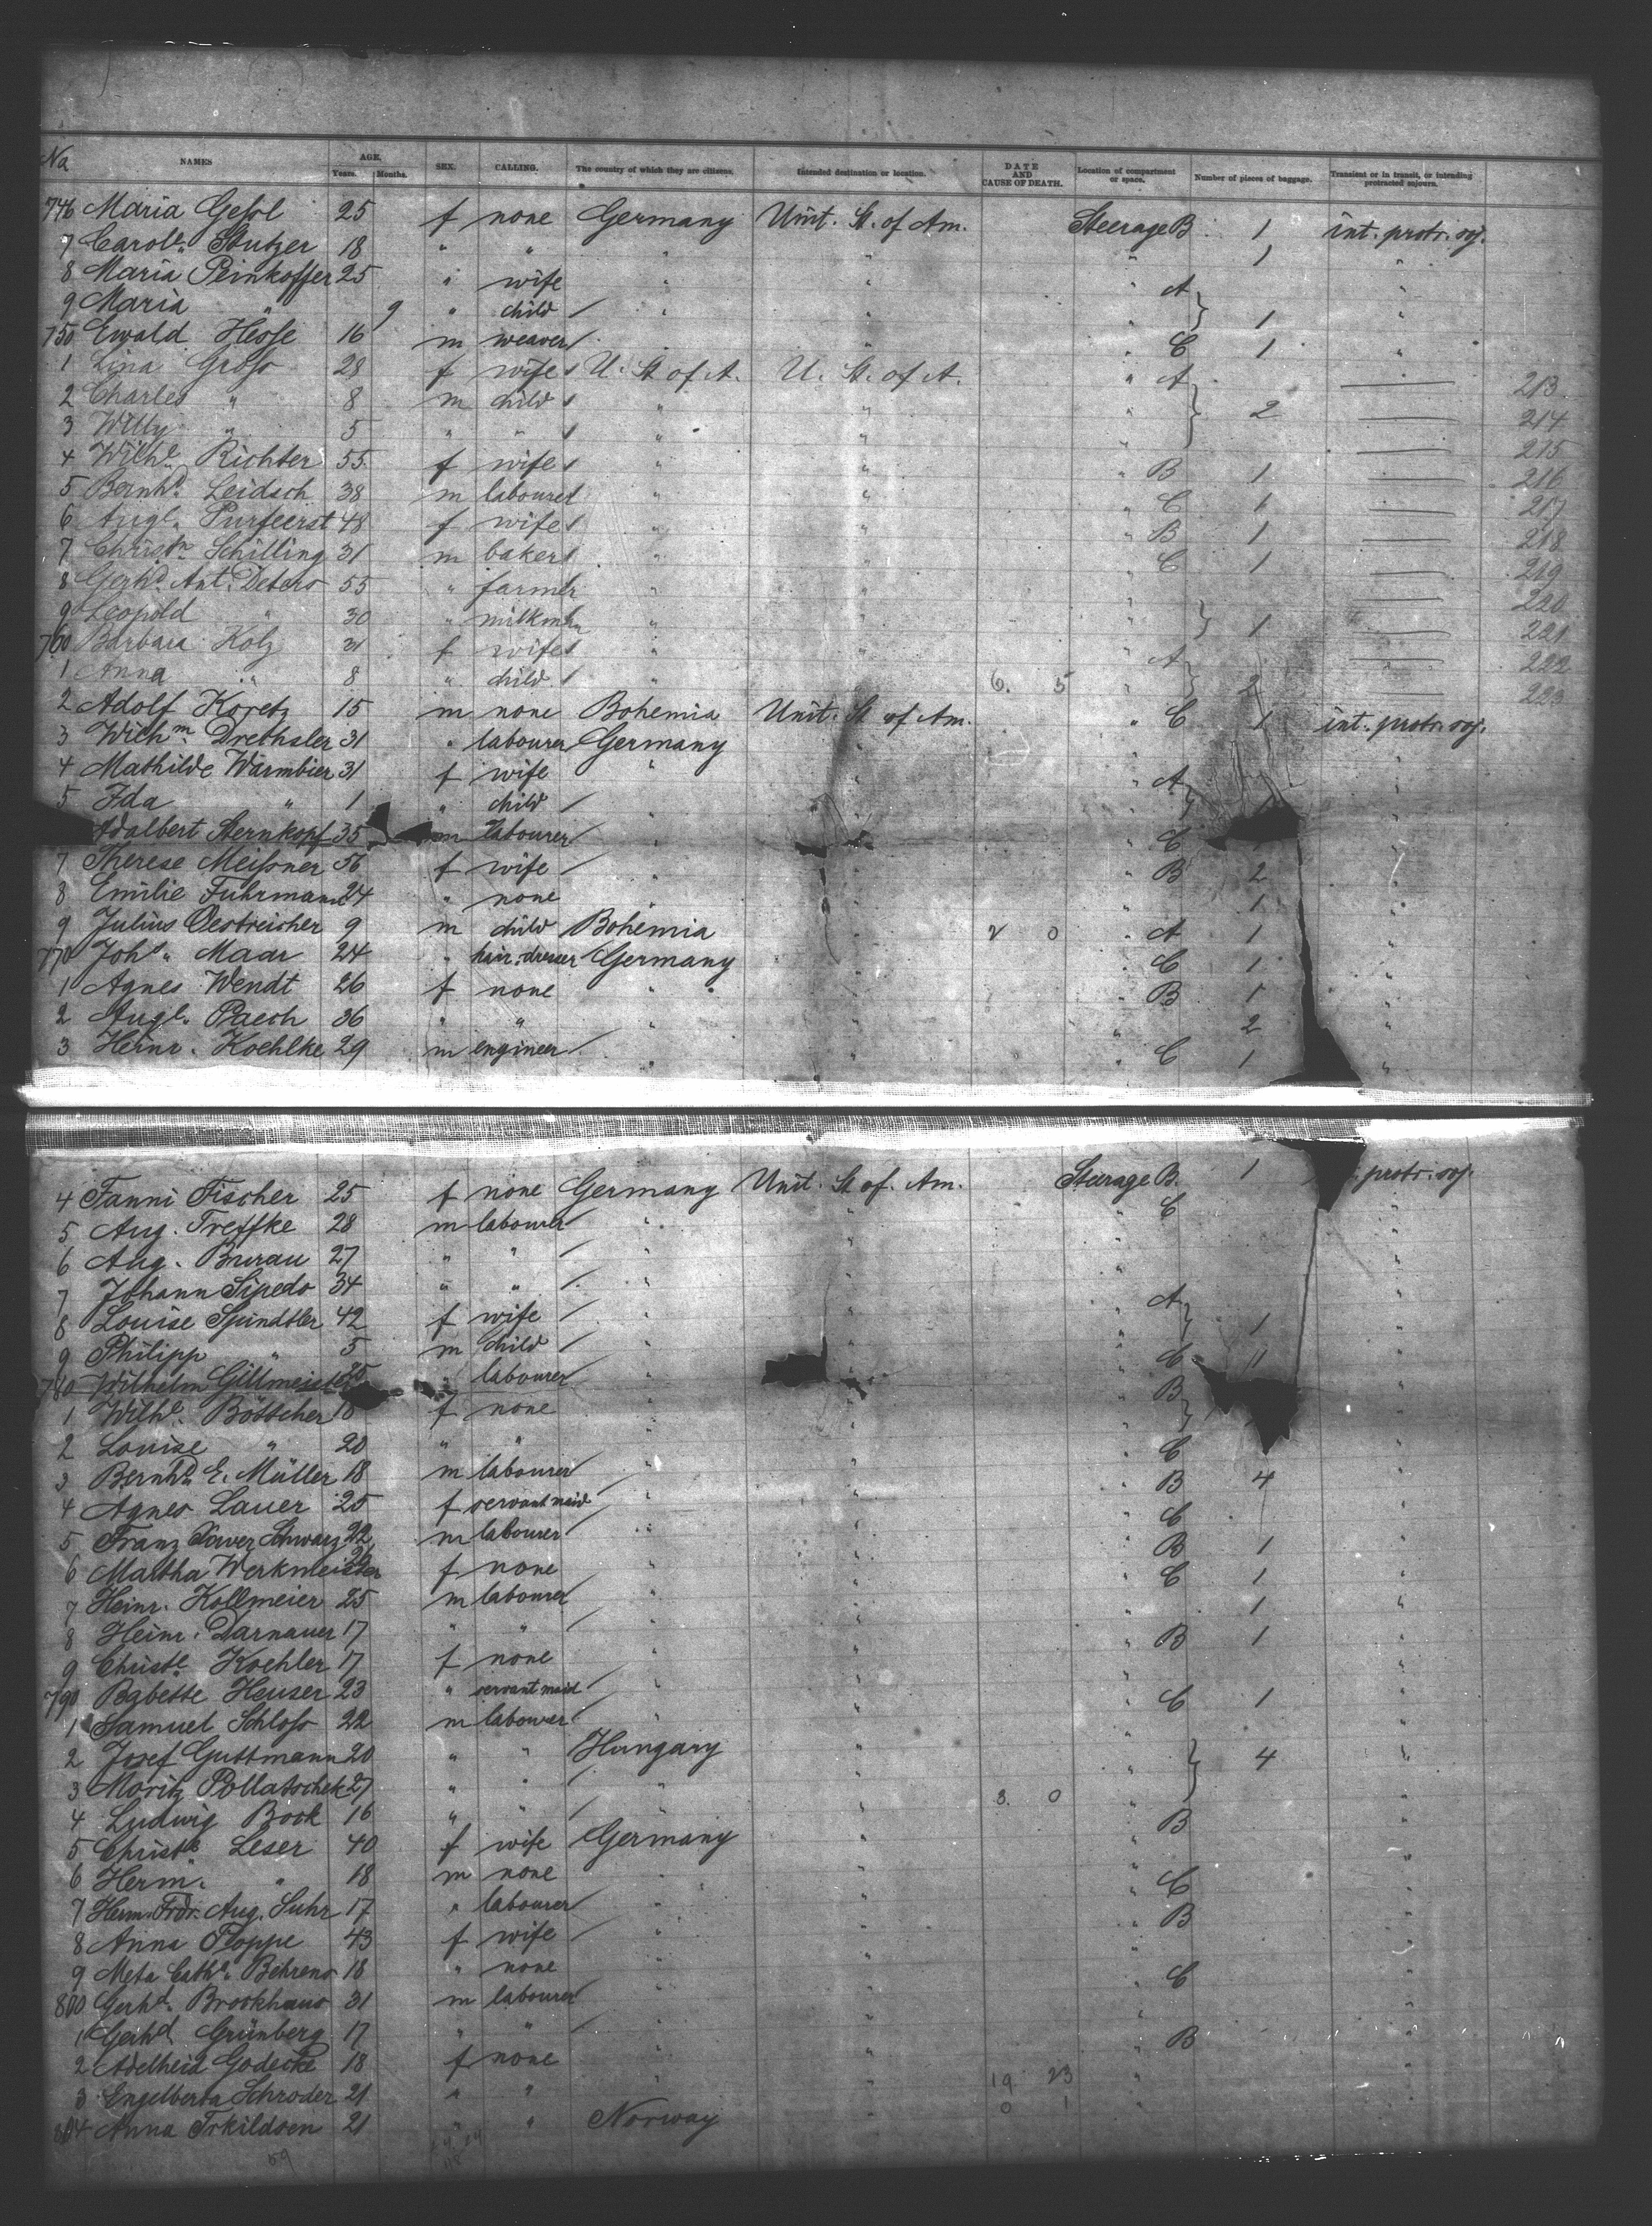 No NAMES AGE, Years. Months. SEX. CALLING. The country of which they are citizens. Intended destination or location. DATE AND CAUSE OF DEATH. Location of compartment or space. Number of pieces of baggage. Transient or in transit, or intending protracted sojourn.
746 Maria Gessl 25 f none Germany Unit. St. of Am. Steerage B 1 int. protr. soj.
7 Carole. Stutzer 18 " " " " " 1 "
8 Maria Peinkoffer 25 " wife " " " A "
9 Maria " 9 " child " " " 1 "
750 Ewald Hesse 16 m weaver " " " C 1 "
1 Lina Gross 28 f wife U. St. of A. U. St. of A. " A 213
2 Charles " 8 m child " " " 2 214
3 Willy " 5 " " " " " 215
4 Wilhe. Richter 55 f wife " " " B 1 216
5 Bernhd. Leidsch 38 m labourer " " " C 1 217
6 Augl. Purfeerst 48 f wife " " " B 1 218
7 Christn Schilling 31 m baker " " " C 1 219
8 Gerhd. Ant. Deters 55 " farmer " " " 220
9 Leopold " 30 " milkman " " " 1 221
760 Barbara Kolz 31 f wife " " " A 222
1 Anna " 8 " child " " 6. 5 " 2 223
2 Adolf Koretz 15 m none Bohemia Unit. St. of Am. " C 1 int. protr. soj.
3 Wilhm Drechsler 31 " labourer Germany " " "
4 Mathilde Warmbier 31 f wife " " " A "
5 Ida " 1 " child " " " "
Adalbert Sternkopf 35 m labourer " " " C "
7 Therese Meissner 56 f wife " " " B 2 "
8 Emilie Fuhrmann 24 " none " " " 1 "
9 Julius Oestreicher 9 m child Bohemia " 2 0 " A 1 "
770 Johs. Maar 24 " hair-dresser Germany " " C 1 "
1 Agnes Wendt 26 f none " " " B 1 "
2 Augl. Paech 36 " " " " " 2 "
3 Heinr. Koehlke 29 m engineer " " " C 1 "
4 Fanni Fischer 25 f none Germany Unit. St. of Am. Steerage B. 1 protr. soj.
5 Aug. Treffke 28 m labourer " " " C "
6 Aug. Burau 27 " " " " " "
7 Johann Sipedo 34 " " " " " "
8 Louise Spindtler 42 f wife " " " A "
9 Philipp " 5 m child " " " 1 "
780 Wilhelm Gillmeister 25 " labourer " " " C "
1 Wilhe. Böttcher 18 f none " " " B "
2 Louise " 20 " " " " " "
3 Bernhd. E. Müller 18 m labourer " " " C "
4 Agnes Lauer 25 f servant maid " " " B 4 "
5 Franz Xaver Schwarz 22 m labourer " " " C "
6 Martha Werkmeister 26 f none " " " B 1 "
7 Heinr. Kollmeier 25 m labourer " " " C 1 "
8 Heinr. Darnauer 17 " " " " " 1 "
9 Christe. Koehler 17 f none " " " B 1 "
790 Babette Heuser 23 " servant maid " " " "
1 Samuel Schloss 22 m labourer " " " C 1 "
2 Josef Guttmann 20 " " Hungary " " "
3 Moritz Pollatschek 27 " " " " " 4 "
4 Ludwig Book 16 " " " " 3. 0 " "
5 Christe Leser 40 f wife Germany " " B "
6 Herm. " 18 m none " " " "
7 Herm. Frdr. Aug. Suhr 17 " labourer " " " C "
8 Anna Ploppe 43 f wife " " " B "
9 Meta Cathe. Behrens 18 " none " " " "
800 Gerhd. Brookhaus 31 m labourer " " " C "
1 Gerhd Grünberg 17 " " " " " "
2 Adelheid Godecke 18 f none " " " B "
3 Engelberta Schroder 21 " " " " 19 23 " "
804 Anna Trkildsen 21 " " Norway " 0 1 "
59